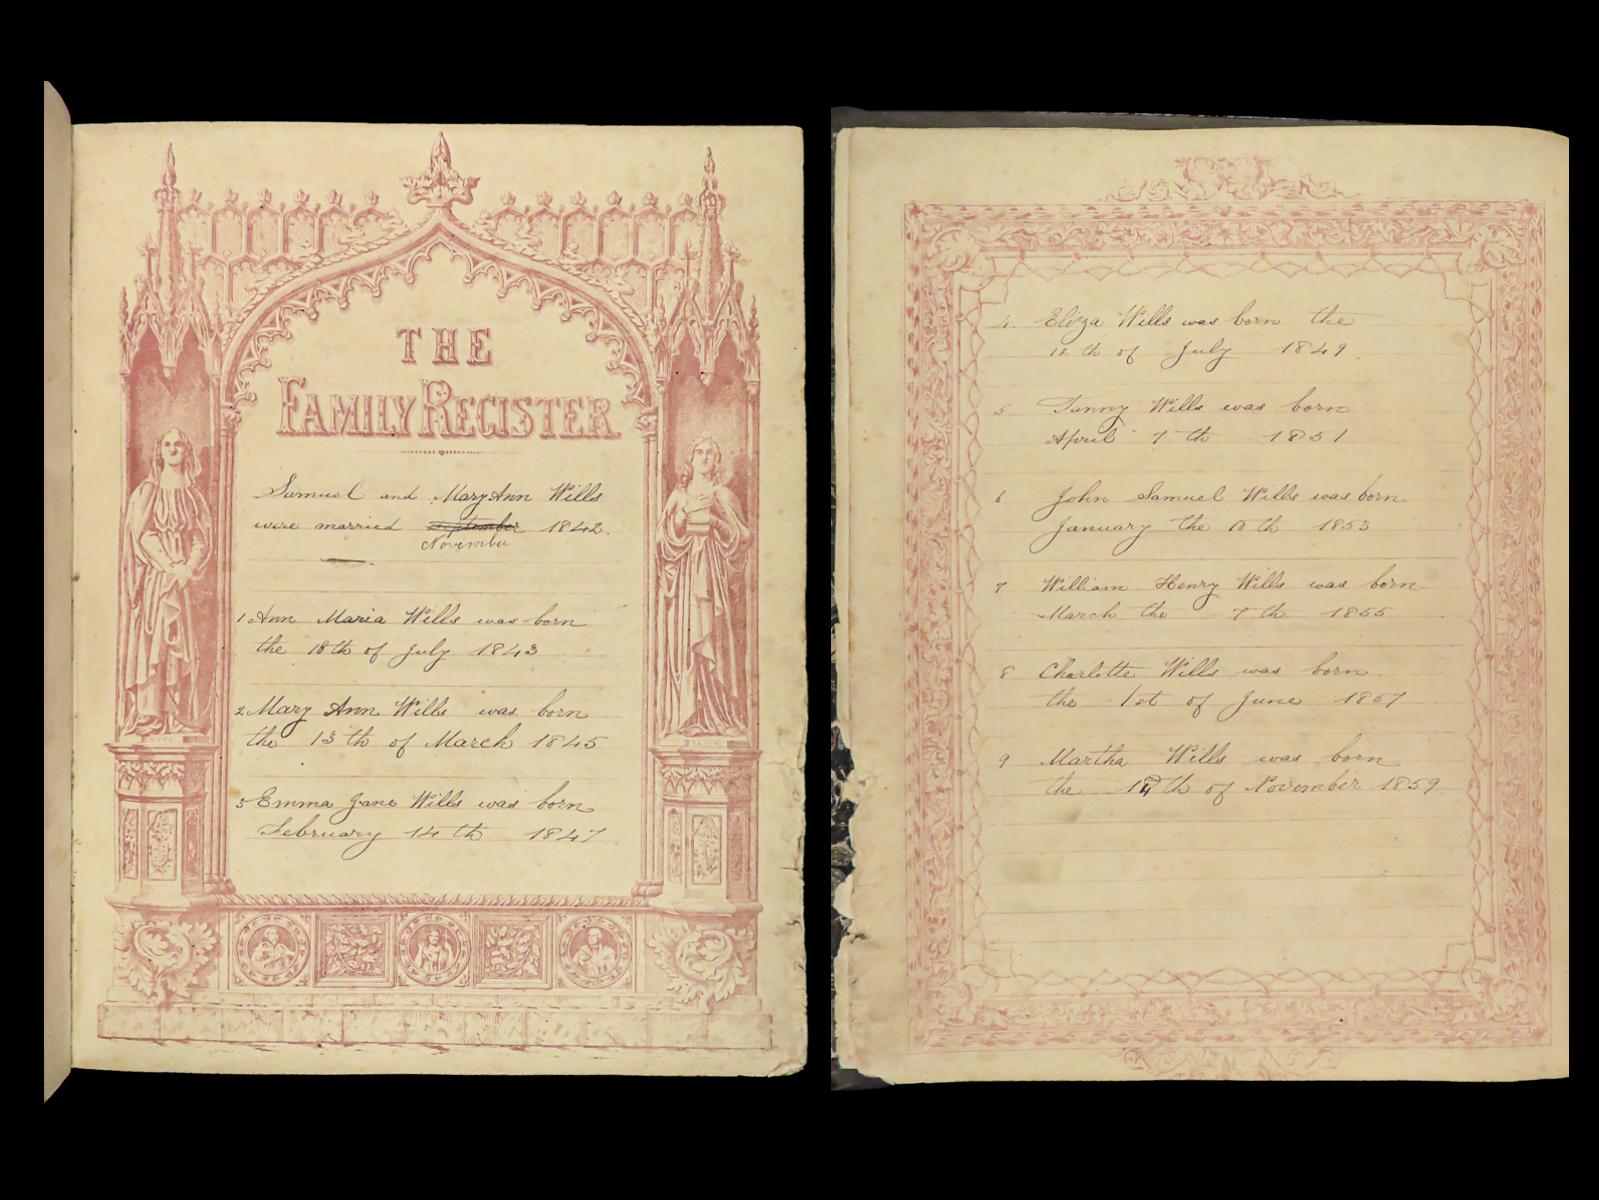 THE
FAMILY REGISTER
Samuel and Mary Ann Wills
were married September 1842.
November
1 Ann Maria Wills was born
the 18th of July 1843
2 Mary Ann Wills was born
the 13th of March 1845
3 Emma Jane Wills was born
February 14th 1847
4. Eliza Wills was born the
12th of July 1849.
5 Fanny Wills was born
April 7th 1851
6 John Samuel Wills was born
January the 10th 1853
7 William Henry Wills was born
March the 7th 1855
8 Charlotte Wills was born
the 1st of June 1857
9 Martha Wills was born
the of November 1859.